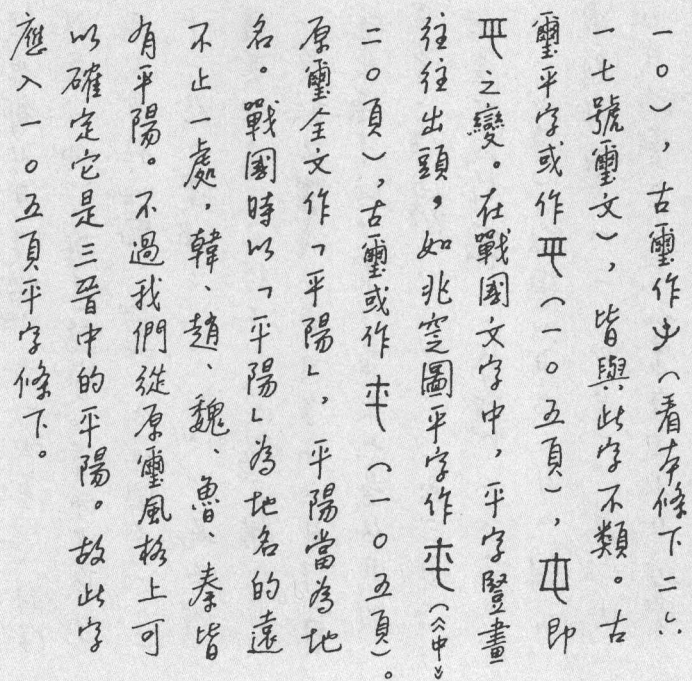 一〇），古璽作（看本條下二六
一七號璽文），皆與此字不類。古
璽平字或作（一〇五頁），即
之變。在戰國文字中，平字豎畫
往往出頭，如兆窆圖平字作（《中》
二〇頁），古璽或作（一〇五頁）。
原璽全文作「平陽」，平陽當為地
名。戰國時以「平陽」為地名的遠
不止一處，韓、趙、魏、魯、秦皆
有平陽。不過我們從原璽風格上可
以確定它是三晉中的平陽。故此字
應入一〇五頁平字條下。